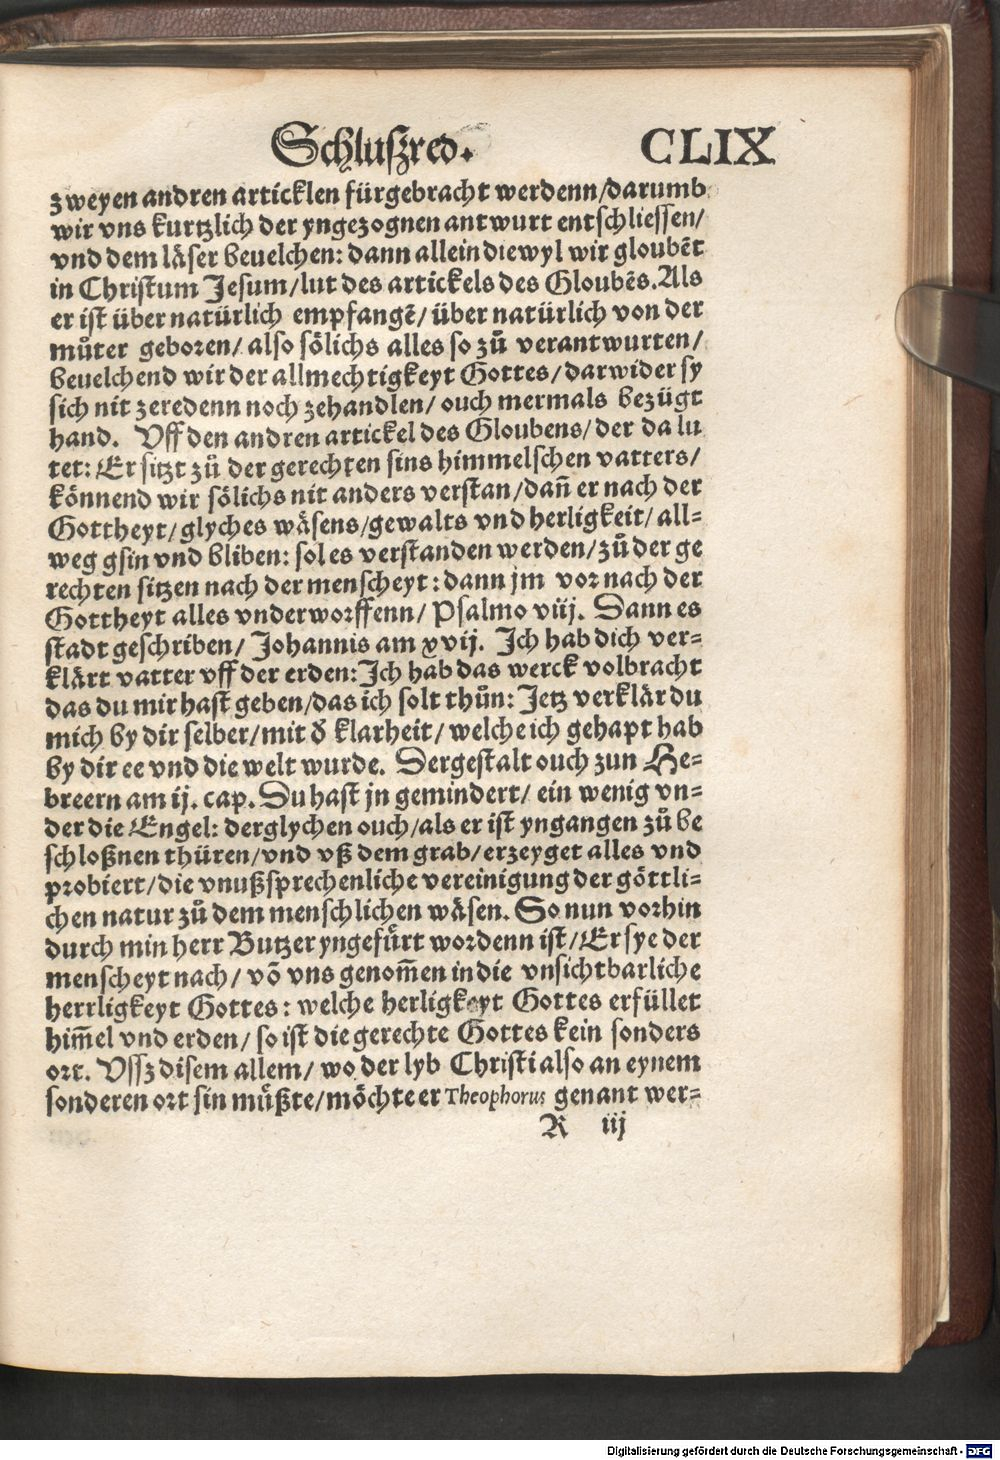 Schluszred. CLIX
zweyen andren articklen fürgebracht werdenn/darumb
wir vns kurtzlich der yngezognen antwurt entschliessen/
vnd dem läser beuelchen: dann allein diewyl wir gloubēt
in Christum Jesum/lut des artickels des Gloubēs. Als
er ist über natürlich empfangē/ über natürlich von der
můter geboren/ also sölichs alles so zů verantwurten/
beuelchend wir der allmechtigkeyt Gottes/ darwider sy
sich nit zeredenn noch zehandlen/ ouch mermals bezügt
hand. Vff den andren artickel des Gloubens/ der da lu
tet: Er sitzt zů der gerechten sins himmelschen vatters/
könnend wir sölichs nit anders verstan/dañ er nach der
Gottheyt/glyches wäsens/gewalts vnd herligkeit/ all-
weg gsin vnd bliben: sol es verstanden werden/zů der ge
rechten sitzen nach der menscheyt: dann jm vor nach der
Gottheyt alles vnderworffenn/ Psalmo viij. Dann es
stadt geschriben/ Johannis am xvij. Ich hab dich ver-
klärt vatter vff der erden: Ich hab das werck volbracht
das du mir hast geben/das ich solt thůn: Jetz verklär du
mich by dir selber/mit d̕ klarheit/ welche ich gehapt hab
by dir ee vnd die welt wurde. Dergestalt ouch zun He-
breern am ij. cap. Du hast jn gemindert/ ein wenig vn-
der die Engel: derglychen ouch/als er ist yngangen zů be
schloßnen thüren/vnd vß dem grab/erzeyget alles vnd
probiert/die vnußsprechenliche vereinigung der göttli-
chen natur zů dem menschlichen wäsen. So nun vorhin
durch min herr Butzer yngefůrt wordenn ist/Er sye der
menscheyt nach/ vō vns genom̄en in die vnsichtbarliche
herrligkeyt Gottes: welche herligkeyt Gottes erfüllet
him̄el vnd erden/ so ist die gerechte Gottes kein sonders
ort. Vssz disem allem/ wo der lyb Christi also an eynem
sonderen ort sin můßte/möchte er Theophorus genant wer-
R iij
Digitalisierung gefördert durch die Deutsche Forschungsgemeinschaft - DFG